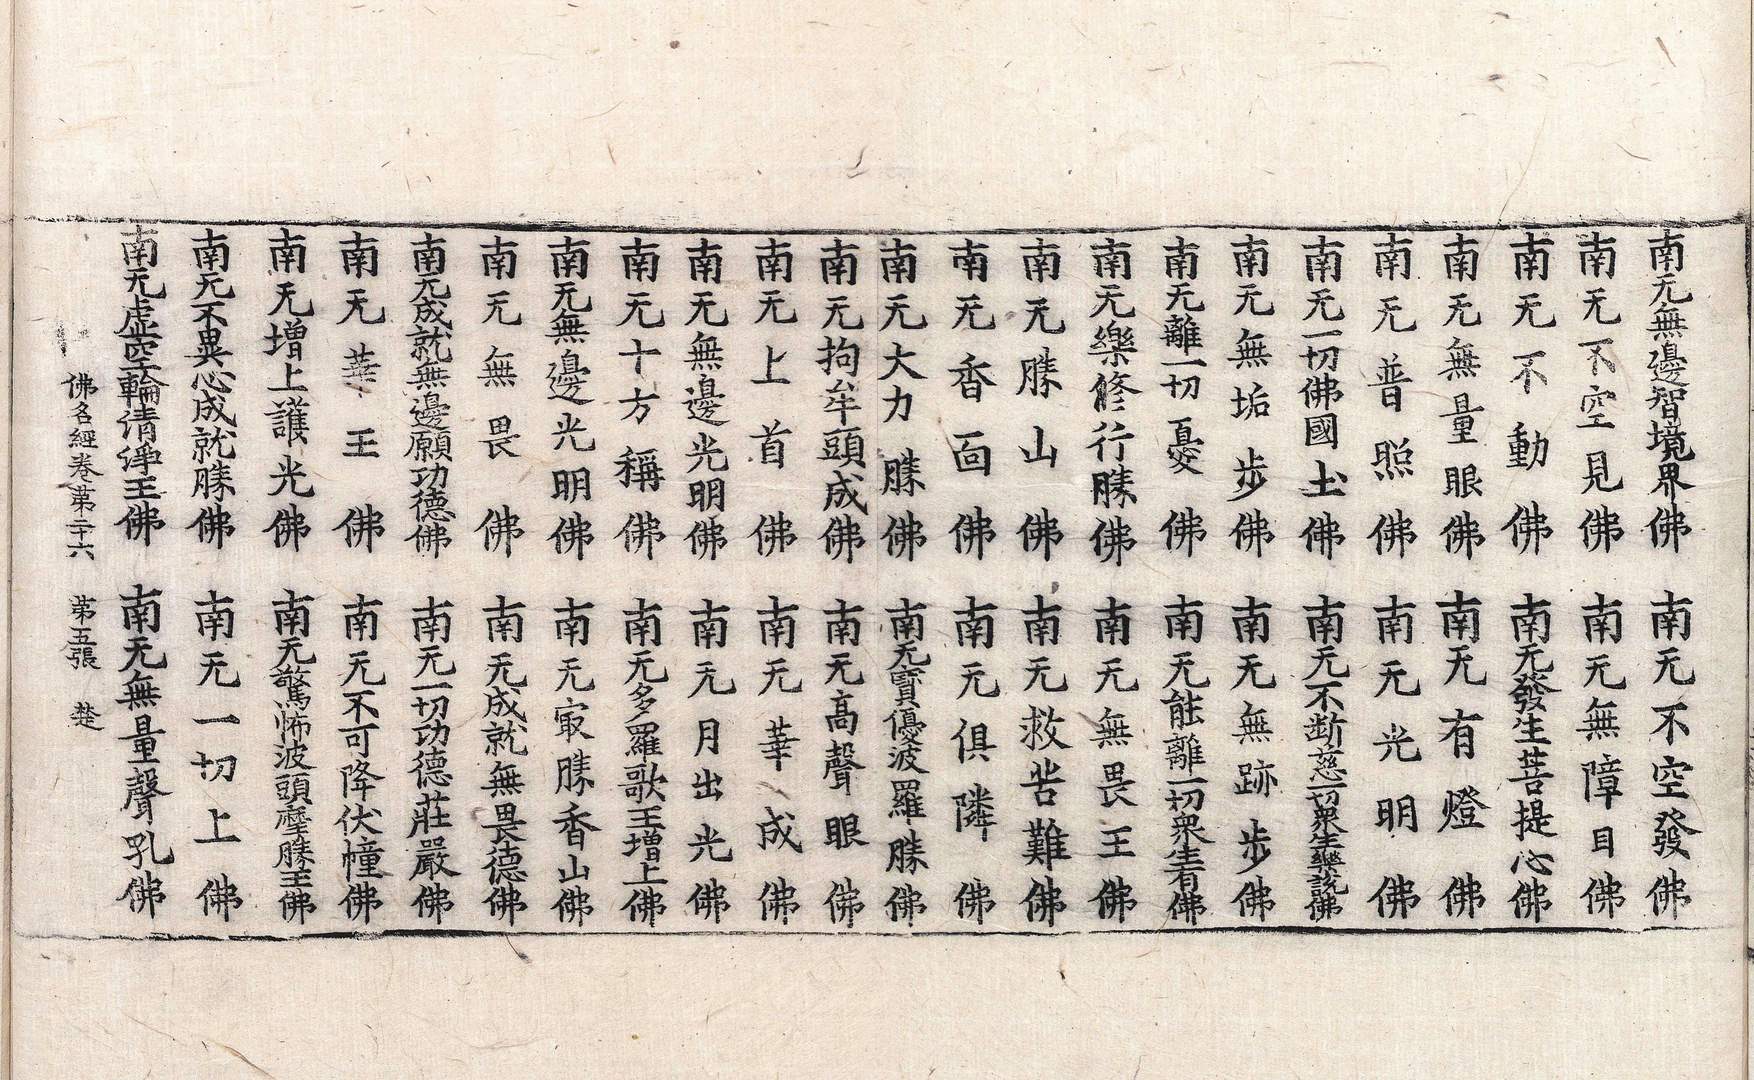 南无無邊智境界佛 南无不空發佛
南无不空見佛 南无無障目佛
南无不動佛 南无發生菩提心佛
南无無量眼佛 南无有燈佛
南无普照佛 南无光明佛
南无一切佛國土佛 南无不断慈一切衆生樂說佛
南无無垢步佛 南无無跡步佛
南无離一切憂佛 南无能離一切衆生有佛
南无樂修行勝佛 南无無畏王佛
南无勝山佛 南无救苦難佛
南无香面佛 南无俱隣佛
南无大力勝佛 南无寶優波羅勝佛
南无拘牟頭成佛 南无高聲眼佛
南无上首佛 南无華成佛
南无無邊光明佛 南无月出光佛
南无十方稱佛 南无多羅歌王增上佛
南无無邊光明佛 南无㝡勝香山佛
南无無畏佛 南无成就無畏德佛
南无成就無邊願功德佛 南无一切功德莊嚴佛
南无華王佛 南无不可降伏幢佛
南无增上護光佛 南无驚怖波頭摩勝王佛
南无不異心成就勝佛 南无一切上佛
南无虛空輪清淨王佛 南无無量聲吼佛
佛名經卷第二十六 第五張 楚